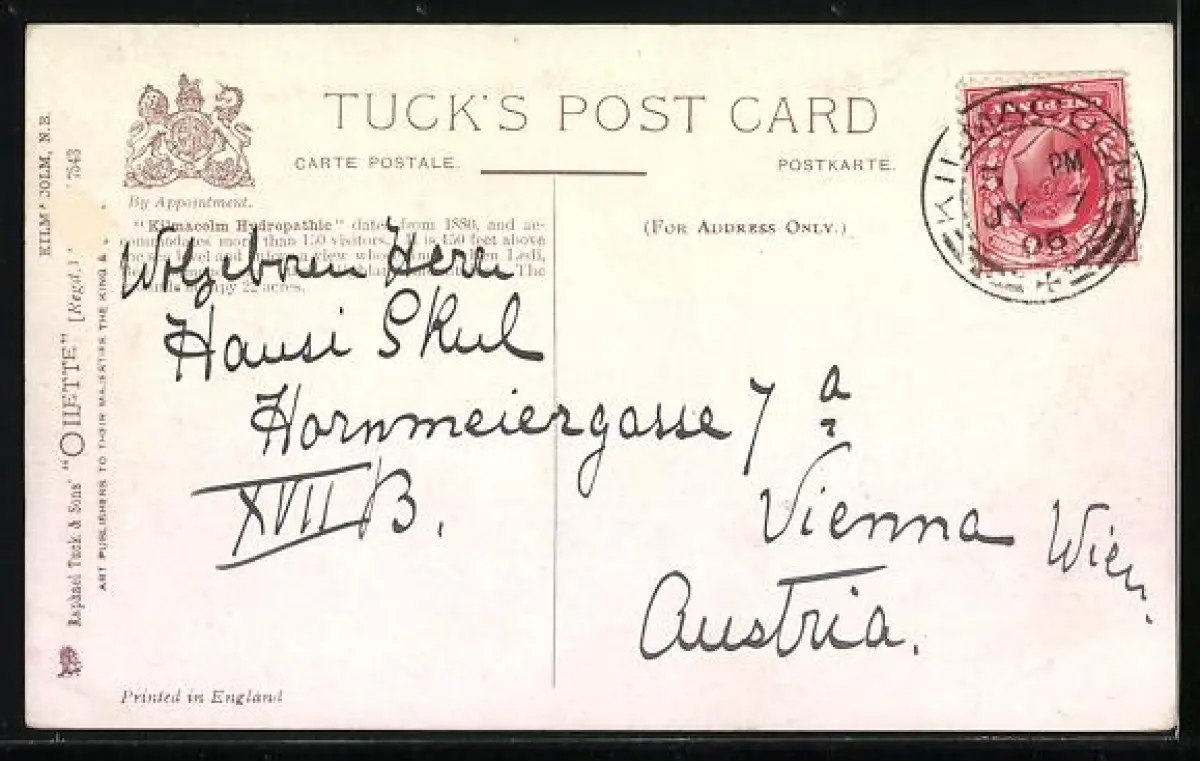 TUCK'S POST CARD
CARTE POSTALE.
POSTKARTE.
By Appointment.
(FOR ADDRESS ONLY.)
"Kilmacolm Hydropathic" dates from 1880, and ac-
commodates more than 150 visitors. It is 450 feet above
view Ben Ledi,
The
occupy 22 acres.
Wolgeboren Herrn
Hansi Skul
Hornmeiergasse 7 a
XVII/B.
Vienna Wien.
Austria.
Printed in England
KILMACOLM, N.B. 7543
Raphael Tuck & Sons' "OILETTE" [Regd.]
ART PUBLISHERS TO THEIR MAJESTIES THE KING &
ONE PENNY
KILMACOLM
PM
JY 7
06